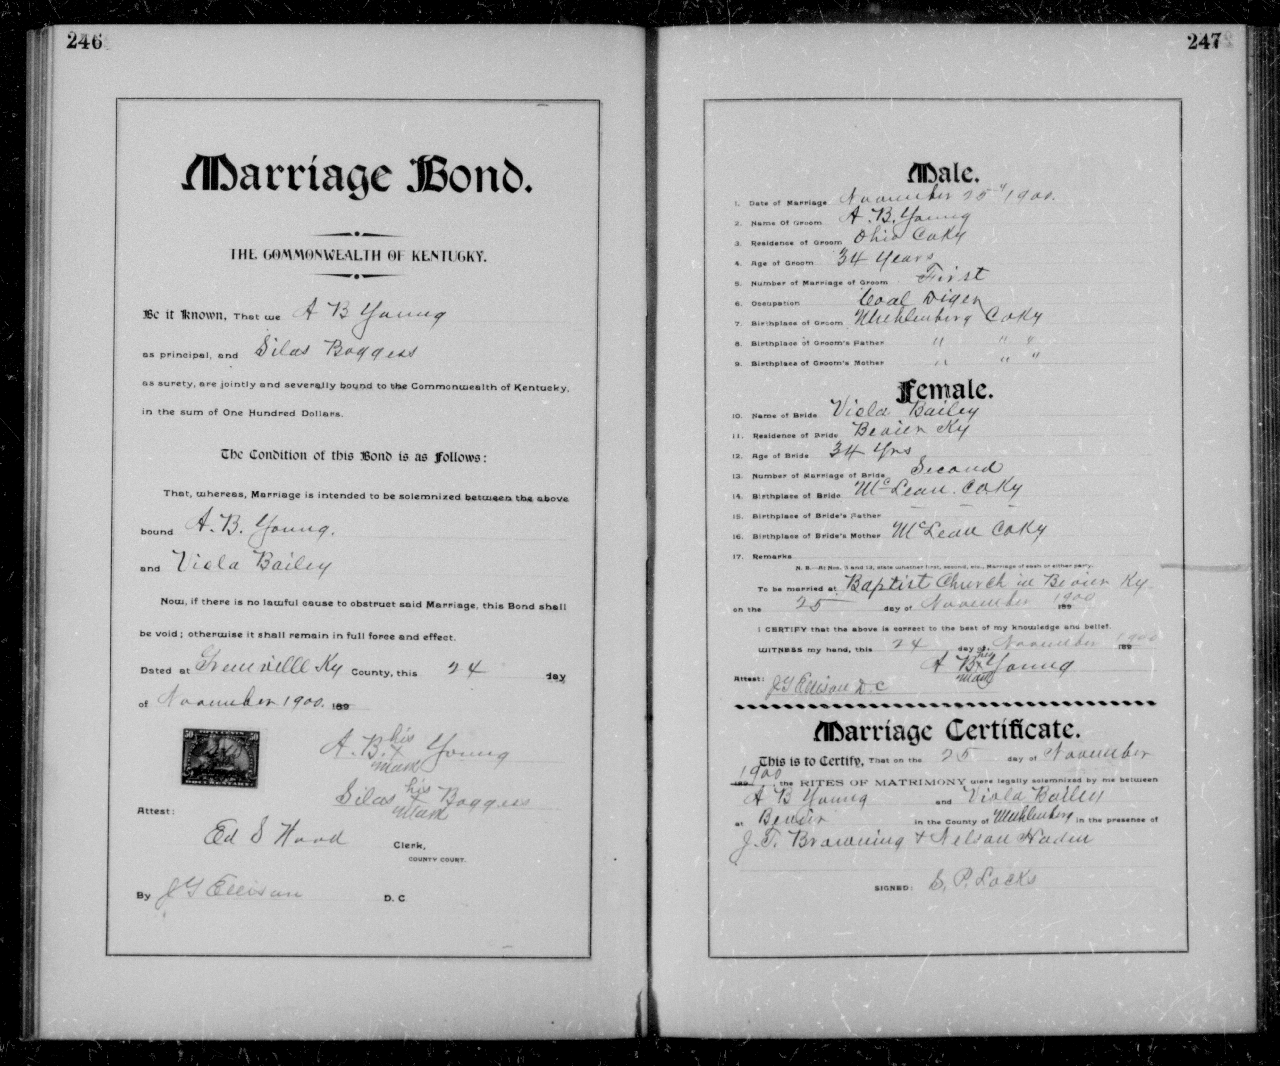 246
Marriage Bond.
THE COMMONWEALTH OF KENTUCKY.
Be it Known, That we A B Young
as principal, and Silas Boggess
as surety, are jointly and severally bound to the Commonwealth of Kentucky,
in the sum of One Hundred Dollars.
The Condition of this Bond is as Follows:
That, whereas, Marriage is intended to be solemnized between the above
bound A. B. Young.
and Viola Bailey
Now, if there is no lawful cause to obstruct said Marriage, this Bond shall
be void; otherwise it shall remain in full force and effect.
Dated at Greenvilll Ky County, this 24 day
of November 1900. 189
A. B. his x mark Young
Silas his x mark Boggess
Attest:
Ed S Wood Clerk,
COUNTY COURT.
By J G Ellison D. C
247
Male.
1. Date of Marriage November 25" 1900.
2. Name Of Groom A. B. Young
3. Residence of Groom Ohio Co Ky
4. Age of Groom 34 Years
5. Number of Marriage of Groom First
6. Occupation Coal Diger
7. Birthplace of Groom Muhlenburg Co Ky
8. Birthplace of Groom's Father " " "
9. Birthplace of Groom's Mother " " "
Female.
10. Name of Bride Viola Bailey
11. Residence of Bride Bevier Ky
12. Age of Bride 34 Yrs
13. Number of Marriage of Bride Second
14. Birthplace of Bride McLean. Co Ky
15. Birthplace of Bride's Father — — —
16. Birthplace of Bride's Mother McLean Co Ky
17. Remarks
N. B.—At Nos. 5 and 13, state whether first, second, etc., Marriage of each or either party.
To be married at Baptist Church in Bevier Ky.
on the 25 day of November 1900 189
I CERTIFY that the above is correct to the best of my knowledge and belief.
WITNESS my hand, this 24 day of November 1900 189
A B his x mark Young
Attest: J G Ellison D. C
Marriage Certificate.
This is to Certify, That on the 25 day of November
1900 189 , the RITES OF MATRIMONY were legally solemnized by me between
A B Young and Viola Bailey
at Bevier in the County of Muhlenberg in the presence of
J. T. Browning & Nelson Haden
SIGNED: S. P. Locks